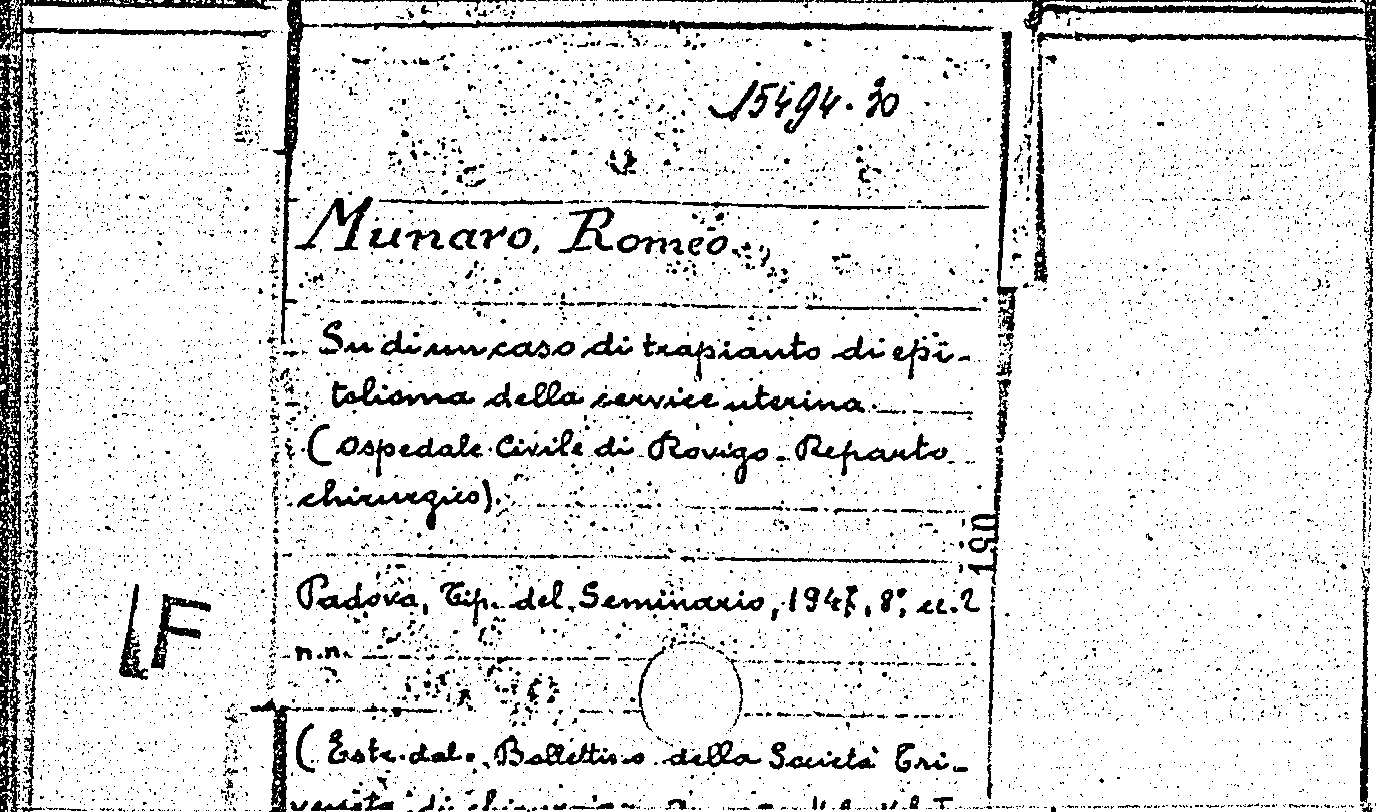 15494.30
Munaro, Romeo
Su di un caso di trapianto di epi-
telioma della cervice uterina
(Ospedale Civile di Rovigo - Reparto
chirurgico).
190
Padova, Tip. del Seminario, 194 , 8°, cc. 2
n.n.
F
(Estr. dal Bollettino della Società Tri-
veneta di chirurgia